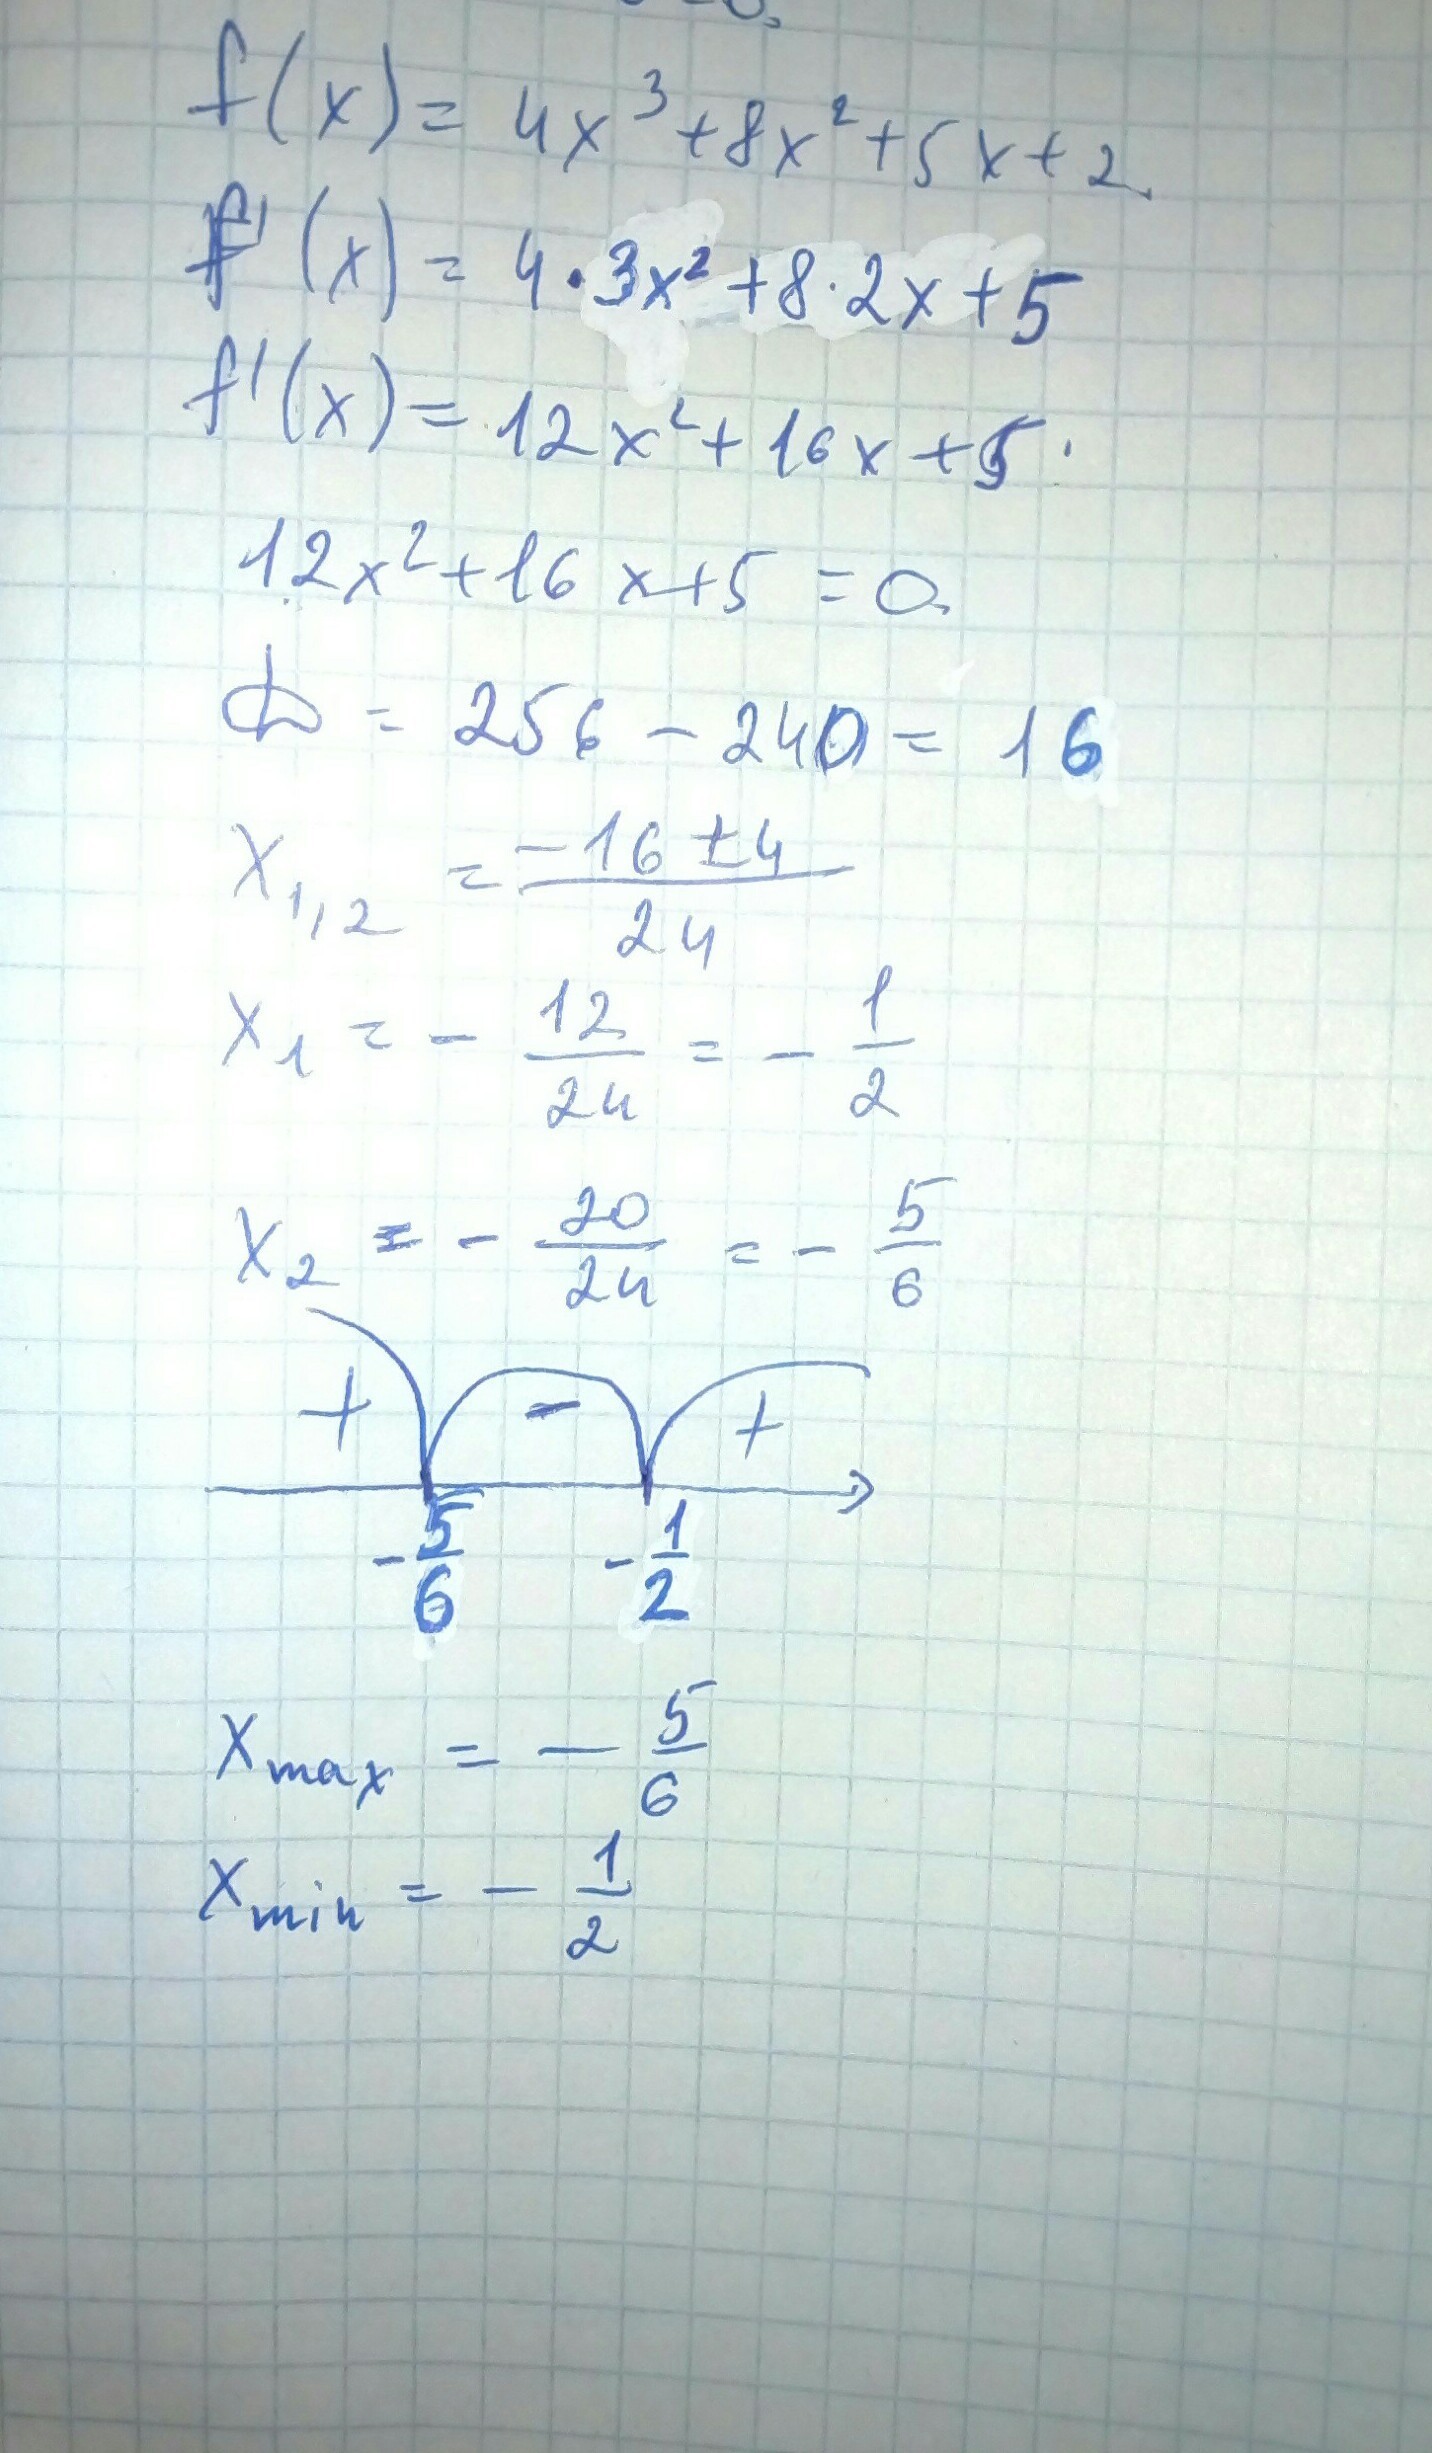 f(x) = 4x³ + 8x² + 5x + 2.
f'(x) = 4·3x² + 8·2x + 5
f'(x) = 12x² + 16x + 5.
12x² + 16x + 5 = 0.
D = 256 - 240 = 16
x₁,₂ = (-16 ± 4)/24
x₁ = - 12/24 = - 1/2
x₂ = - 20/24 = - 5/6
+ - +
-5/6 -1/2
x max = - 5/6
x min = - 1/2